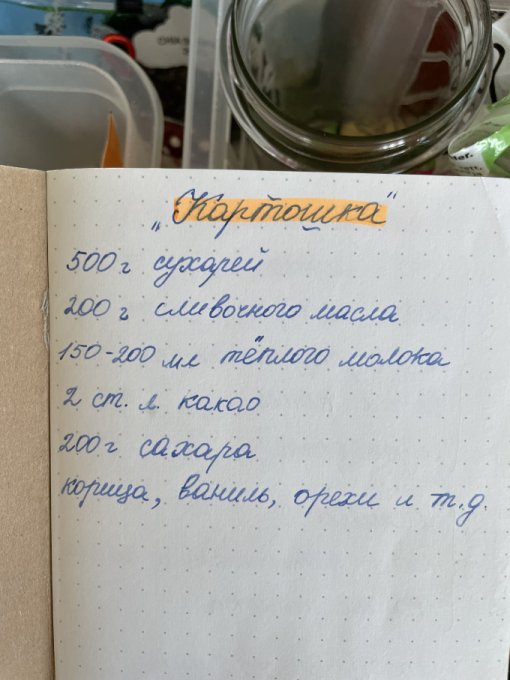 „Картошка“
500 г сухарей
200 г сливочного масла
150-200 мл тёплого молока
2 ст. л. какао
200 г сахара
корица, ваниль, орехи и т.д.